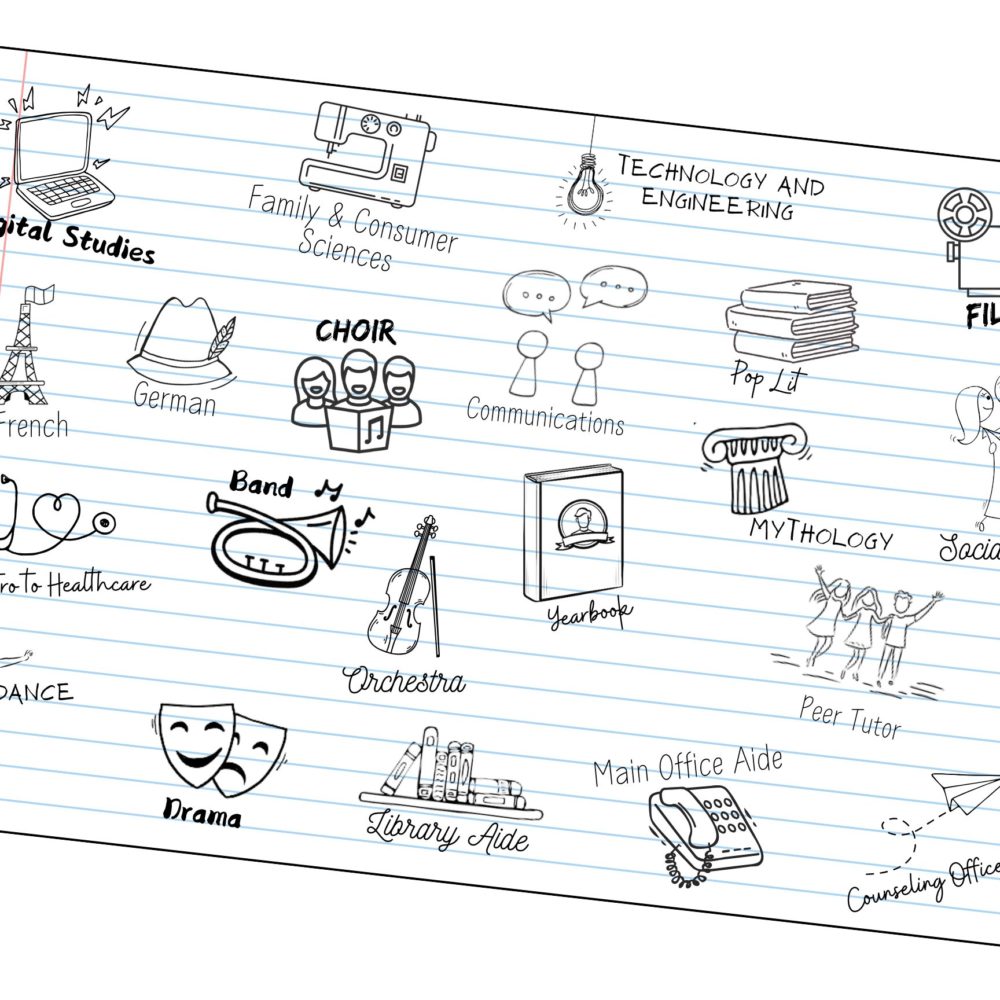 gital Studies
Family & Consumer
Sciences
TECHNOLOGY AND
ENGINEERING
FIL
French
German
CHOIR
Communications
Pop Lit
MYTHOLOGY
Socia
ro to Healthcare
Band
Orchestra
Yearbook
Peer Tutor
DANCE
Drama
Library Aide
Main Office Aide
Counseling Office